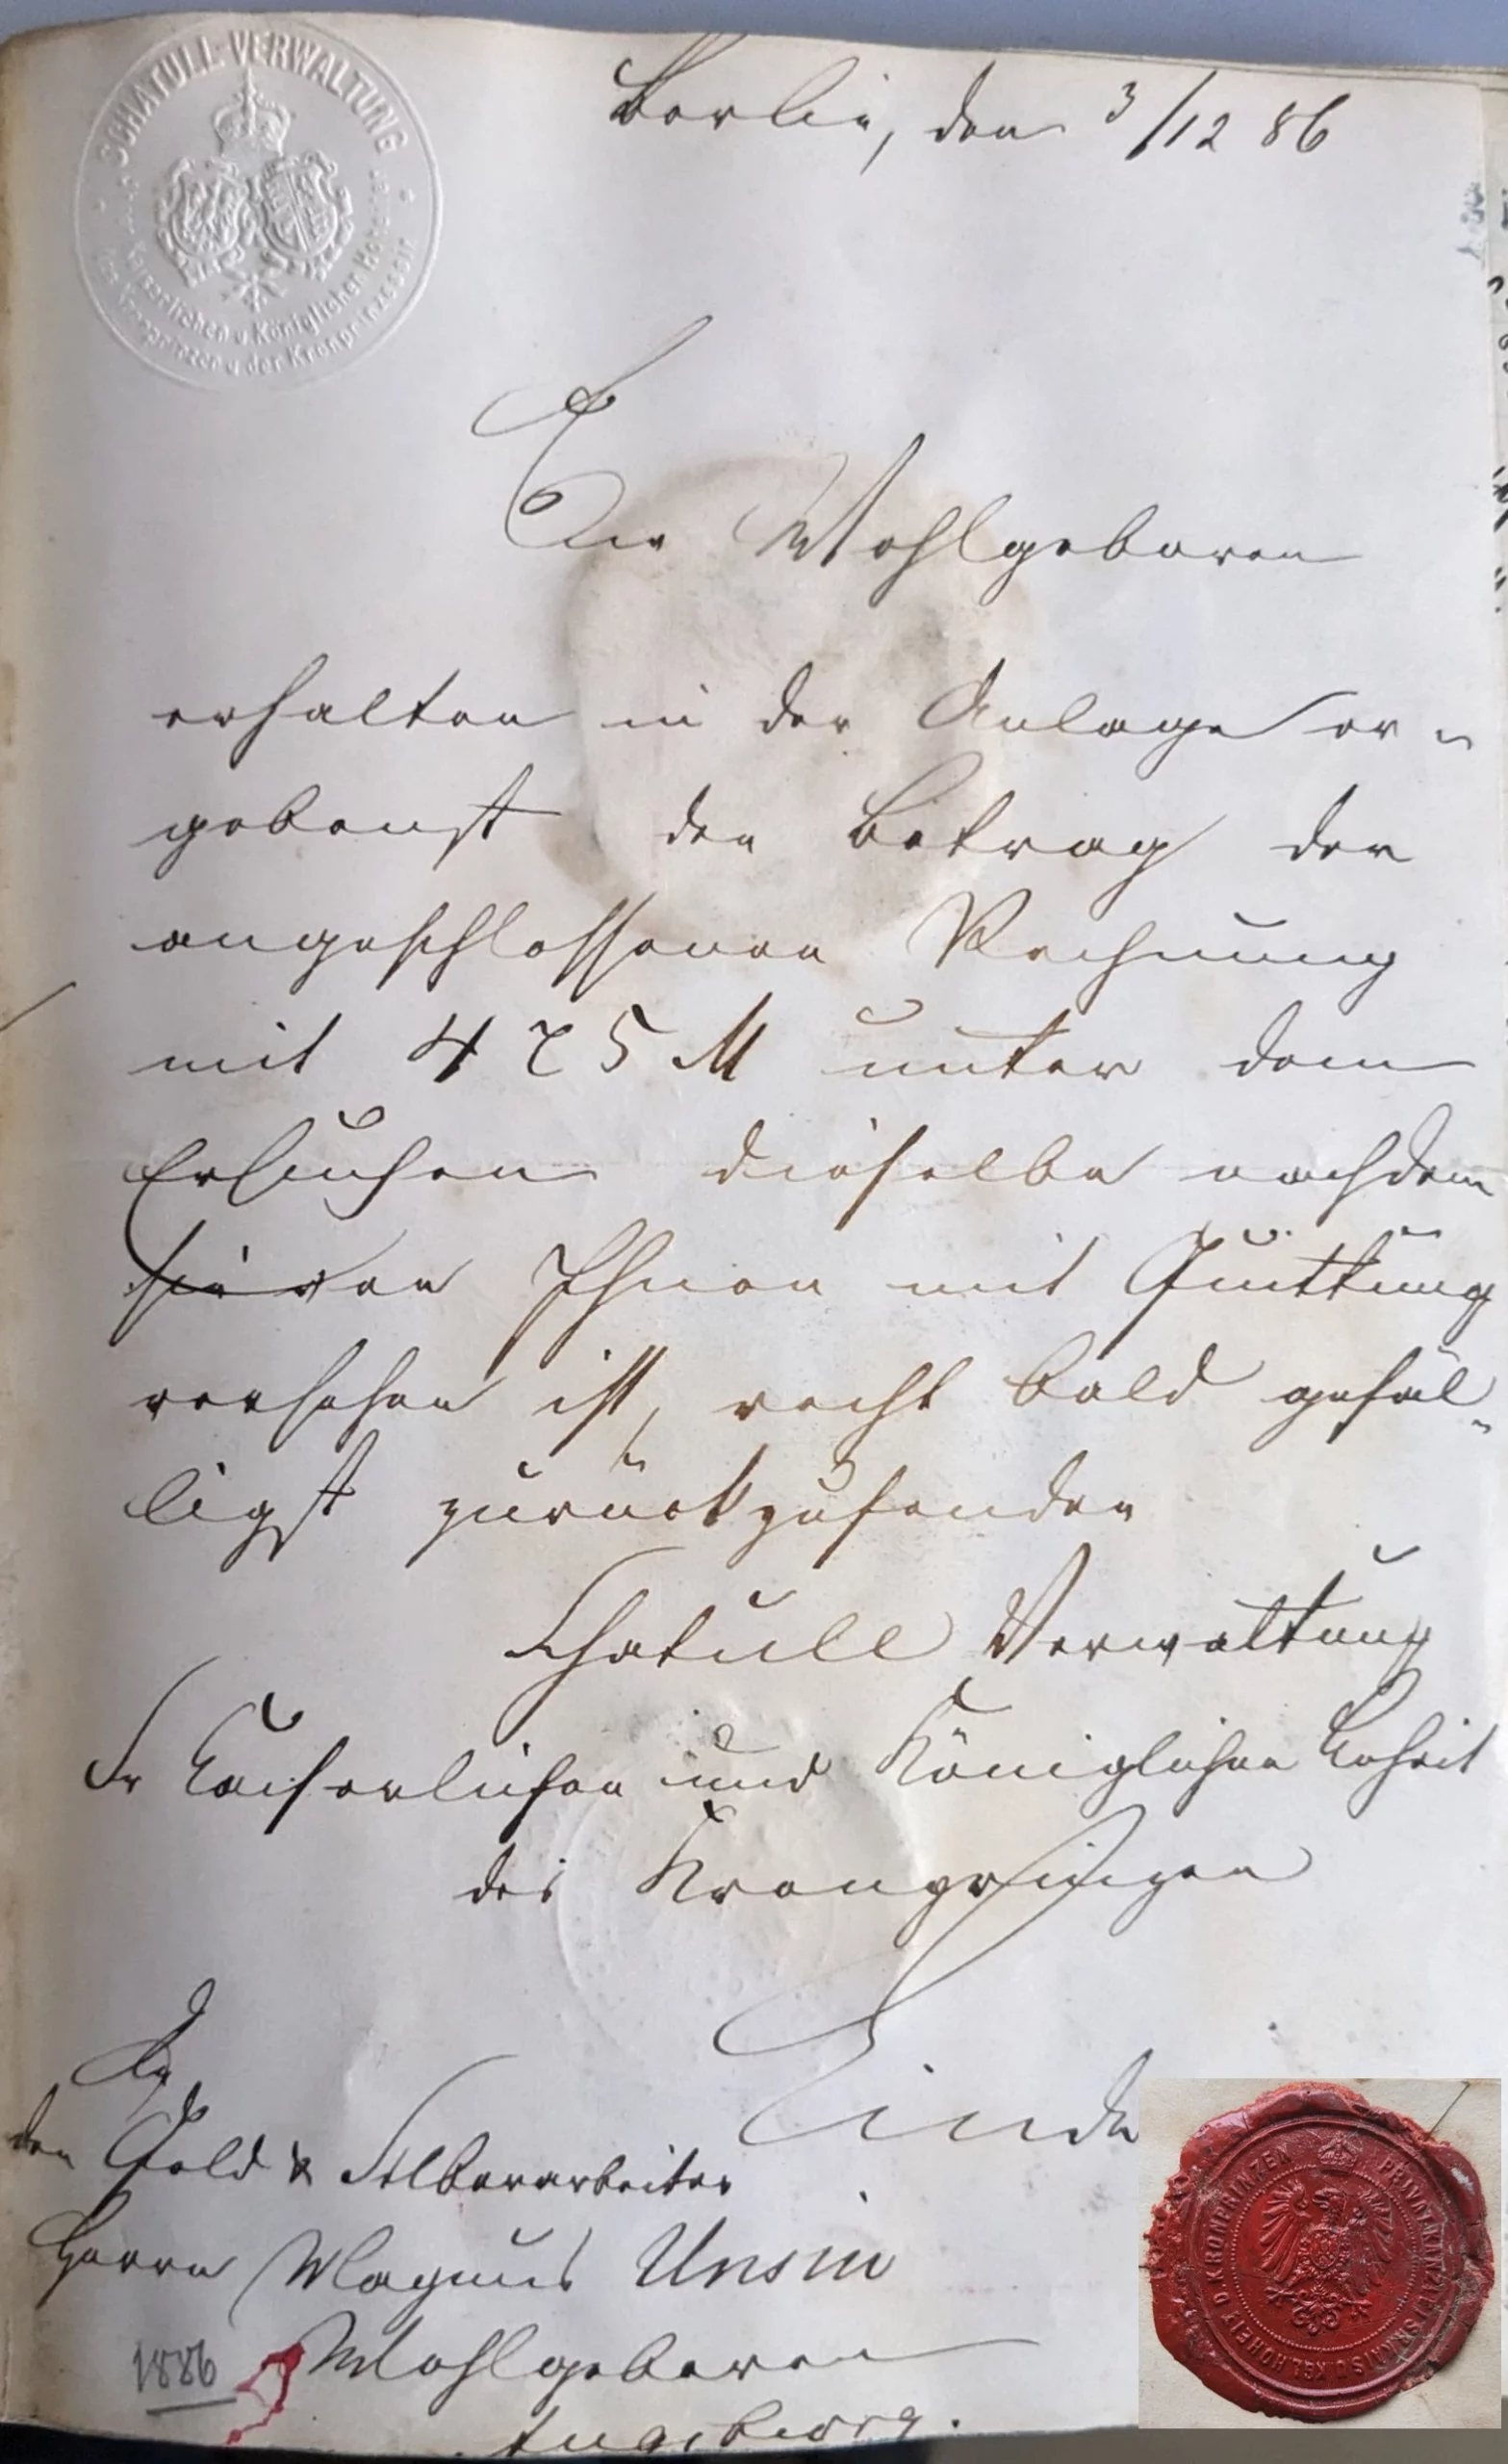 SCHATULL-VERWALTUNG
Kaiserlichen u. Königlichen Hoheiten
des Kronprinzen u. der Kronprinzessin
Berlin, den 3/12 86
Ew Wohlgeboren
erhalten in der Anlage er-
gebenst den Betrag der
angeschlossenen Rechnung
mit 475 M unter dem
Ersuchen dieselbe nachdem
sie von Ihnen mit Quittung
versehen ist, recht bald gefäl-
ligst zurückzusenden
Schatull Verwaltung
Sr Kaiserlichen und Königlichen Hoheit
des Kronprinzen
An
den Gold & Silberarbeiter
Herrn Magnus Unsin
Wohlgeboren
Augsburg.
1886
PRIVATKANZLEI SR KAIS. U. KGL. HOHEIT D. KRONPRINZEN